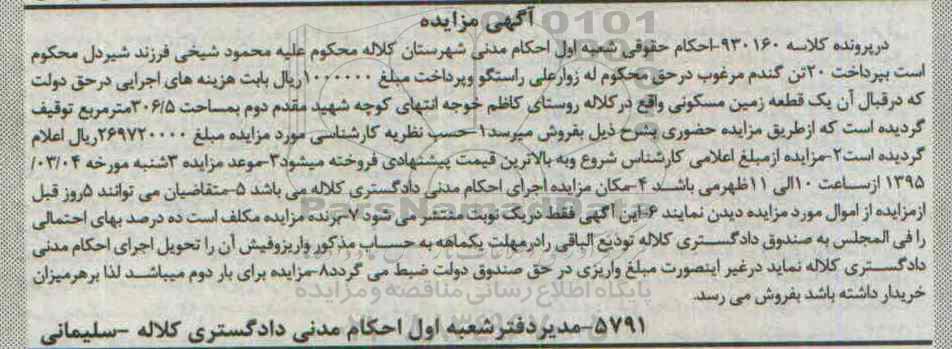 آگهی مزایده
درپرونده کلاسه ۹۳۰۱۶۰-احکام حقوقی شعبه اول احکام مدنی شهرستان کلاله محکوم علیه محمود شیخی فرزند شیردل محکوم
است بپرداخت ۲۰تن گندم مرغوب درحق محکوم له زوارعلی راستگو وپرداخت مبلغ ۱۰۰۰۰۰۰ریال بابت هزینه های اجرایی درحق دولت
که درقبال آن یک قطعه زمین مسکونی واقع درکلاله روستای کاظم خوجه انتهای کوچه شهید مقدم دوم بمساحت ۳۰۶/۵مترمربع توقیف
گردیده است که ازطریق مزایده حضوری بشرح ذیل بفروش میرسد۱-حسب نظریه کارشناسی مورد مزایده مبلغ ۲۶۹۷۲۰۰۰۰ریال اعلام
گردیده است۲-مزایده ازمبلغ اعلامی کارشناس شروع وبه بالاترین قیمت پیشنهادی فروخته میشود۳-موعد مزایده ۳شنبه مورخه ۰۳/۰۴/
۱۳۹۵ ازساعت ۱۰الی ۱۱ظهرمی باشد ۴-مکان مزایده اجرای احکام مدنی دادگستری کلاله می باشد ۵-متقاضیان می توانند ۵روز قبل
ازمزایده از اموال مورد مزایده دیدن نمایند ۶-این آگهی فقط دریک نوبت منتشر می شود ۷-برنده مزایده مکلف است ده درصد بهای احتمالی
را فی المجلس به صندوق دادگستری کلاله تودیع الباقی رادرمهلت یکماهه به حساب مذکور واریزوفیش آن را تحویل اجرای احکام مدنی
دادگستری کلاله نماید درغیر اینصورت مبلغ واریزی در حق صندوق دولت ضبط می گردد۸-مزایده برای بار دوم میباشد لذا برهرمیزان
خریدار داشته باشد بفروش می رسد.
پایگاه اطلاع رسانی مناقصه و مزایده
ParsNamadData
۵۷۹۱-مدیردفترشعبه اول احکام مدنی دادگستری کلاله -سلیمانی